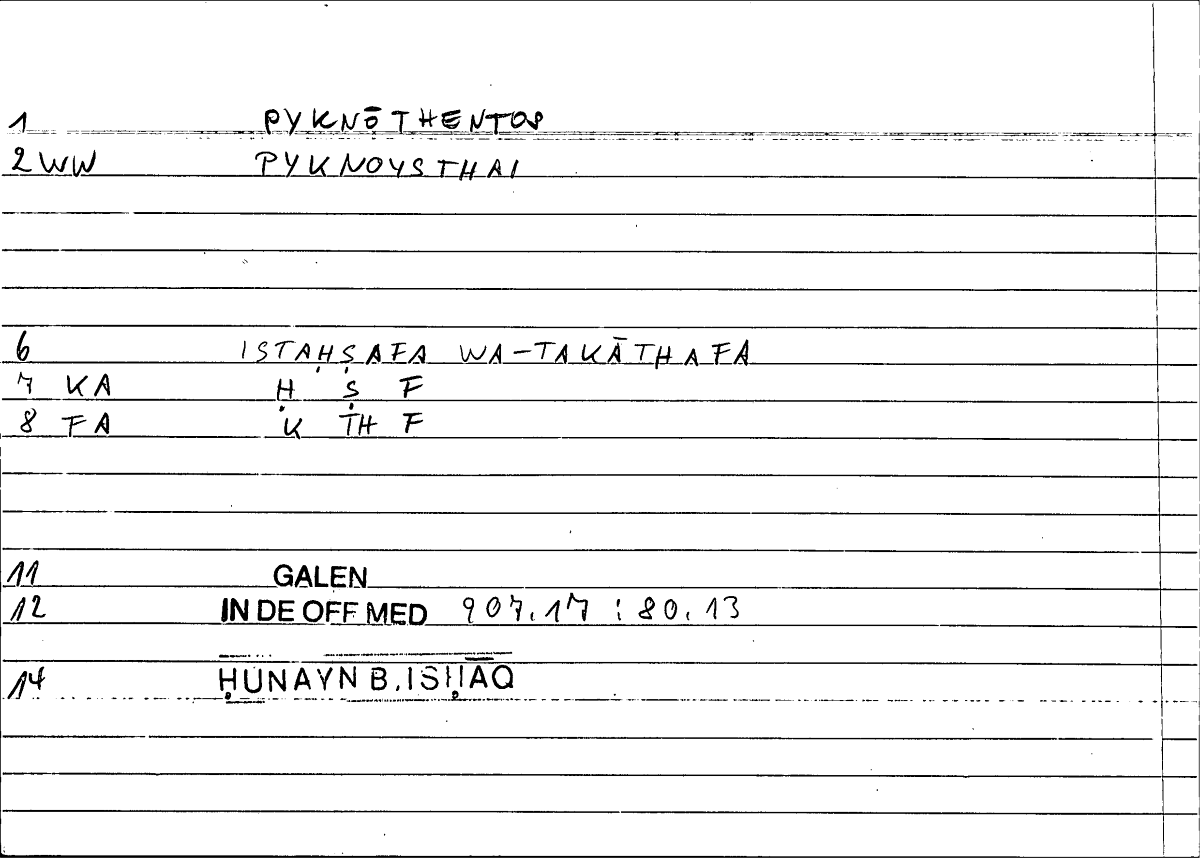 1 PYKNŌTHENTOS
2 WW PYKNOYSTHAI
6 ISTAḤṢAFA WA-TAKĀTHAFA
7 KA Ḥ Ṣ F
8 FA K TH F
11 GALEN
12 IN DE OFF MED 907.17 : 80.13
14 ḤUNAYN B. ISḤĀQ